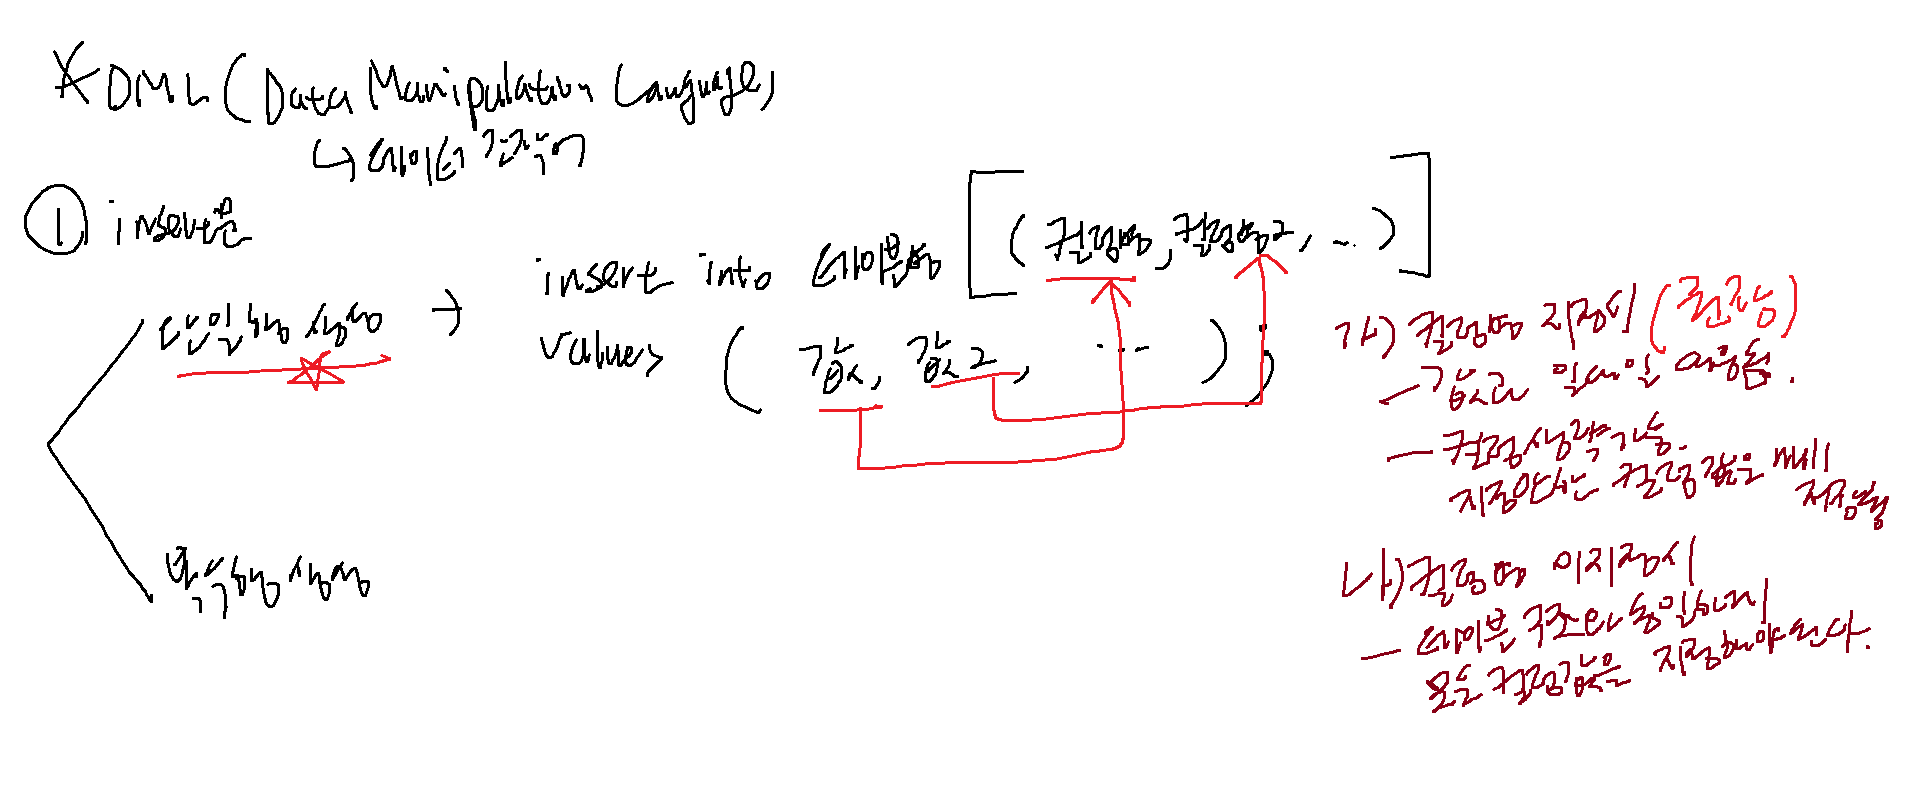 * DML (Data Manipulation Language)
↳ 데이터 조작어
① insert문
단일행 생성 → insert into 테이블명 [ (컬럼명, 컬럼명2, ...) ]
values ( 값, 값2, ... );
복수행 생성
가) 컬럼명 지정시 (권장)
- 값과 일대일 대응됨.
- 컬럼생략가능.
지정안한 컬럼값은 null
저장됨
나) 컬럼명 미지정시
- 테이블 구조와 동일하게
모든 컬럼값을 지정해야된다.